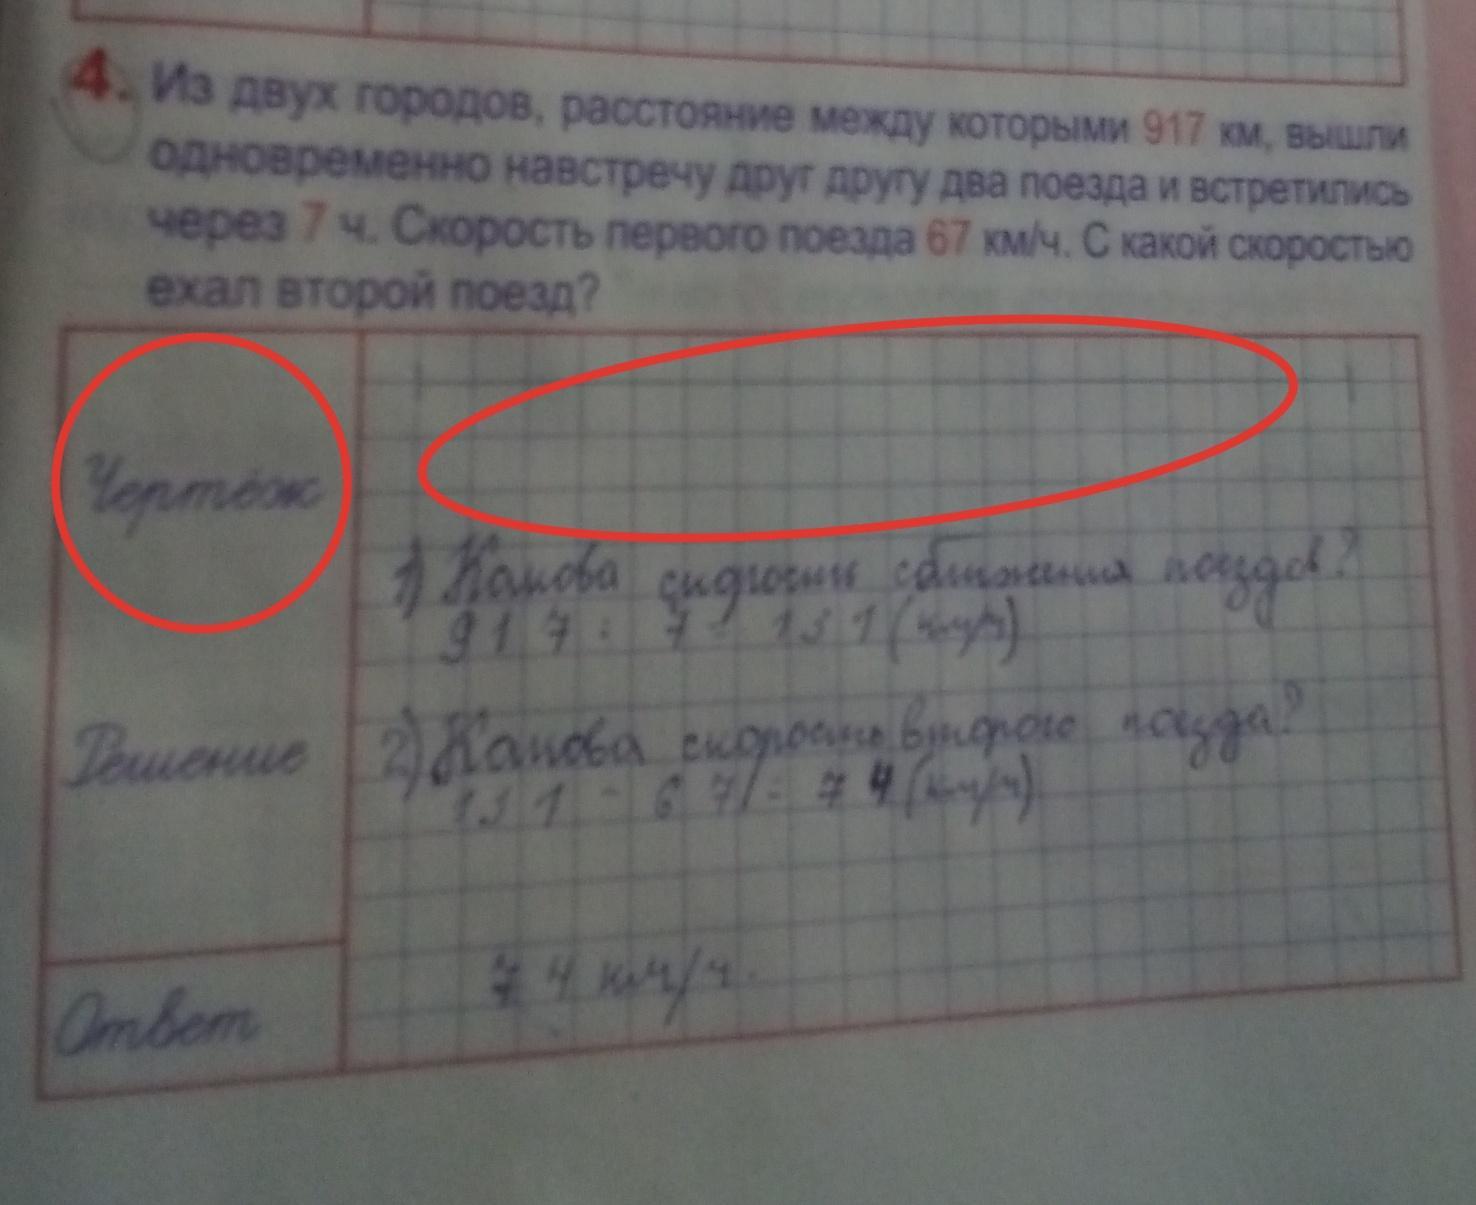 4. Из двух городов, расстояние между которыми 917 км, вышли
одновременно навстречу друг другу два поезда и встретились
через 7 ч. Скорость первого поезда 67 км/ч. С какой скоростью
ехал второй поезд?
Чертёж
1) Какова скорость сближения поездов?
917 : 7 = 131 (км/ч)
Решение
2) Какова скорость второго поезда?
131 - 67 = 74 (км/ч)
Ответ
74 км/ч.